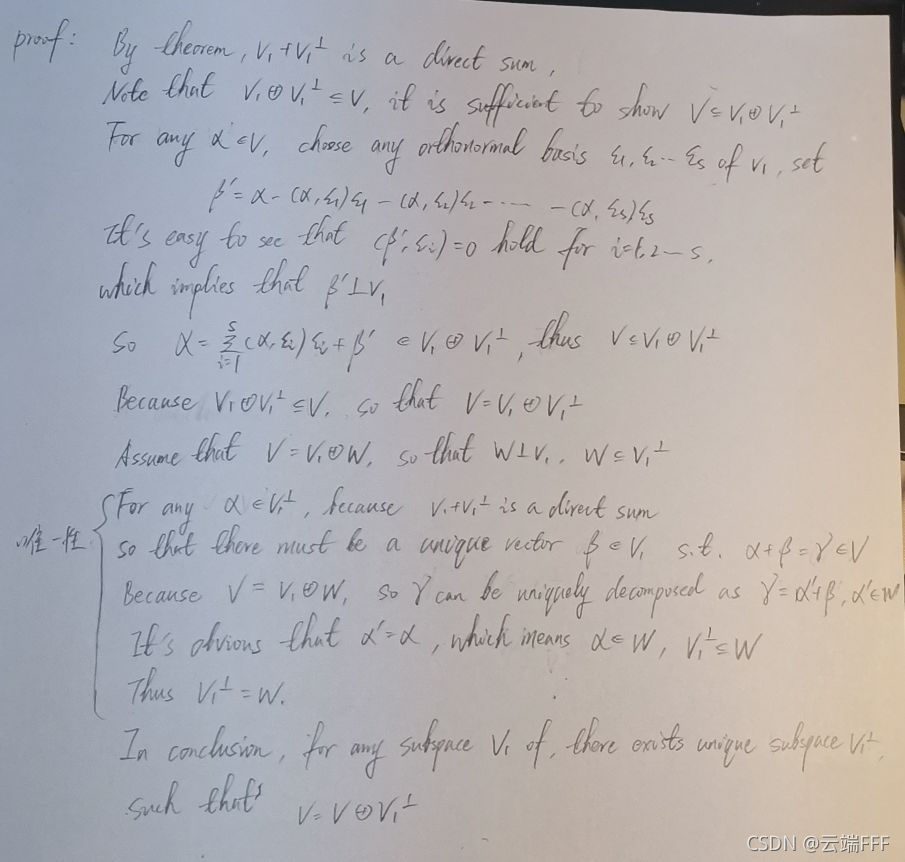 proof: By theorem, V₁+V₁^⊥ is a direct sum,
Note that V₁⊕V₁^⊥ ⊆ V, it is sufficient to show V ⊆ V₁⊕V₁^⊥
For any α∈V, choose any orthonormal basis ε₁, ε₂ ⋯ εs of V₁, set
β' = α - (α, ε₁)ε₁ - (α, ε₂)ε₂ - ⋯⋯ - (α, εs)εs
It's easy to see that (β', εi)=0 hold for i=1,2⋯s,
which implies that β'⊥V₁
So α = ∑_{i=1}^{s} (α, εi) εi + β' ∈ V₁ ⊕ V₁^⊥, thus V ⊆ V₁⊕V₁^⊥
Because V₁⊕V₁^⊥ ⊆ V, so that V = V₁⊕V₁^⊥
Assume that V = V₁⊕W, so that W⊥V₁, W ⊆ V₁^⊥
唯一性 { For any α∈V₁^⊥, because V₁+V₁^⊥ is a direct sum
so that there must be a unique vector β∈V₁ s.t. α+β=γ∈V
Because V = V₁⊕W, so γ can be uniquely decomposed as γ=α'+β, α'∈W
It's obvious that α'=α, which means α∈W, V₁^⊥ ⊆ W
Thus V₁^⊥ = W.
In conclusion, for any subspace V₁ of, there exists unique subspace V₁^⊥,
such that V = V⊕V₁^⊥
CSDN @云端FFF